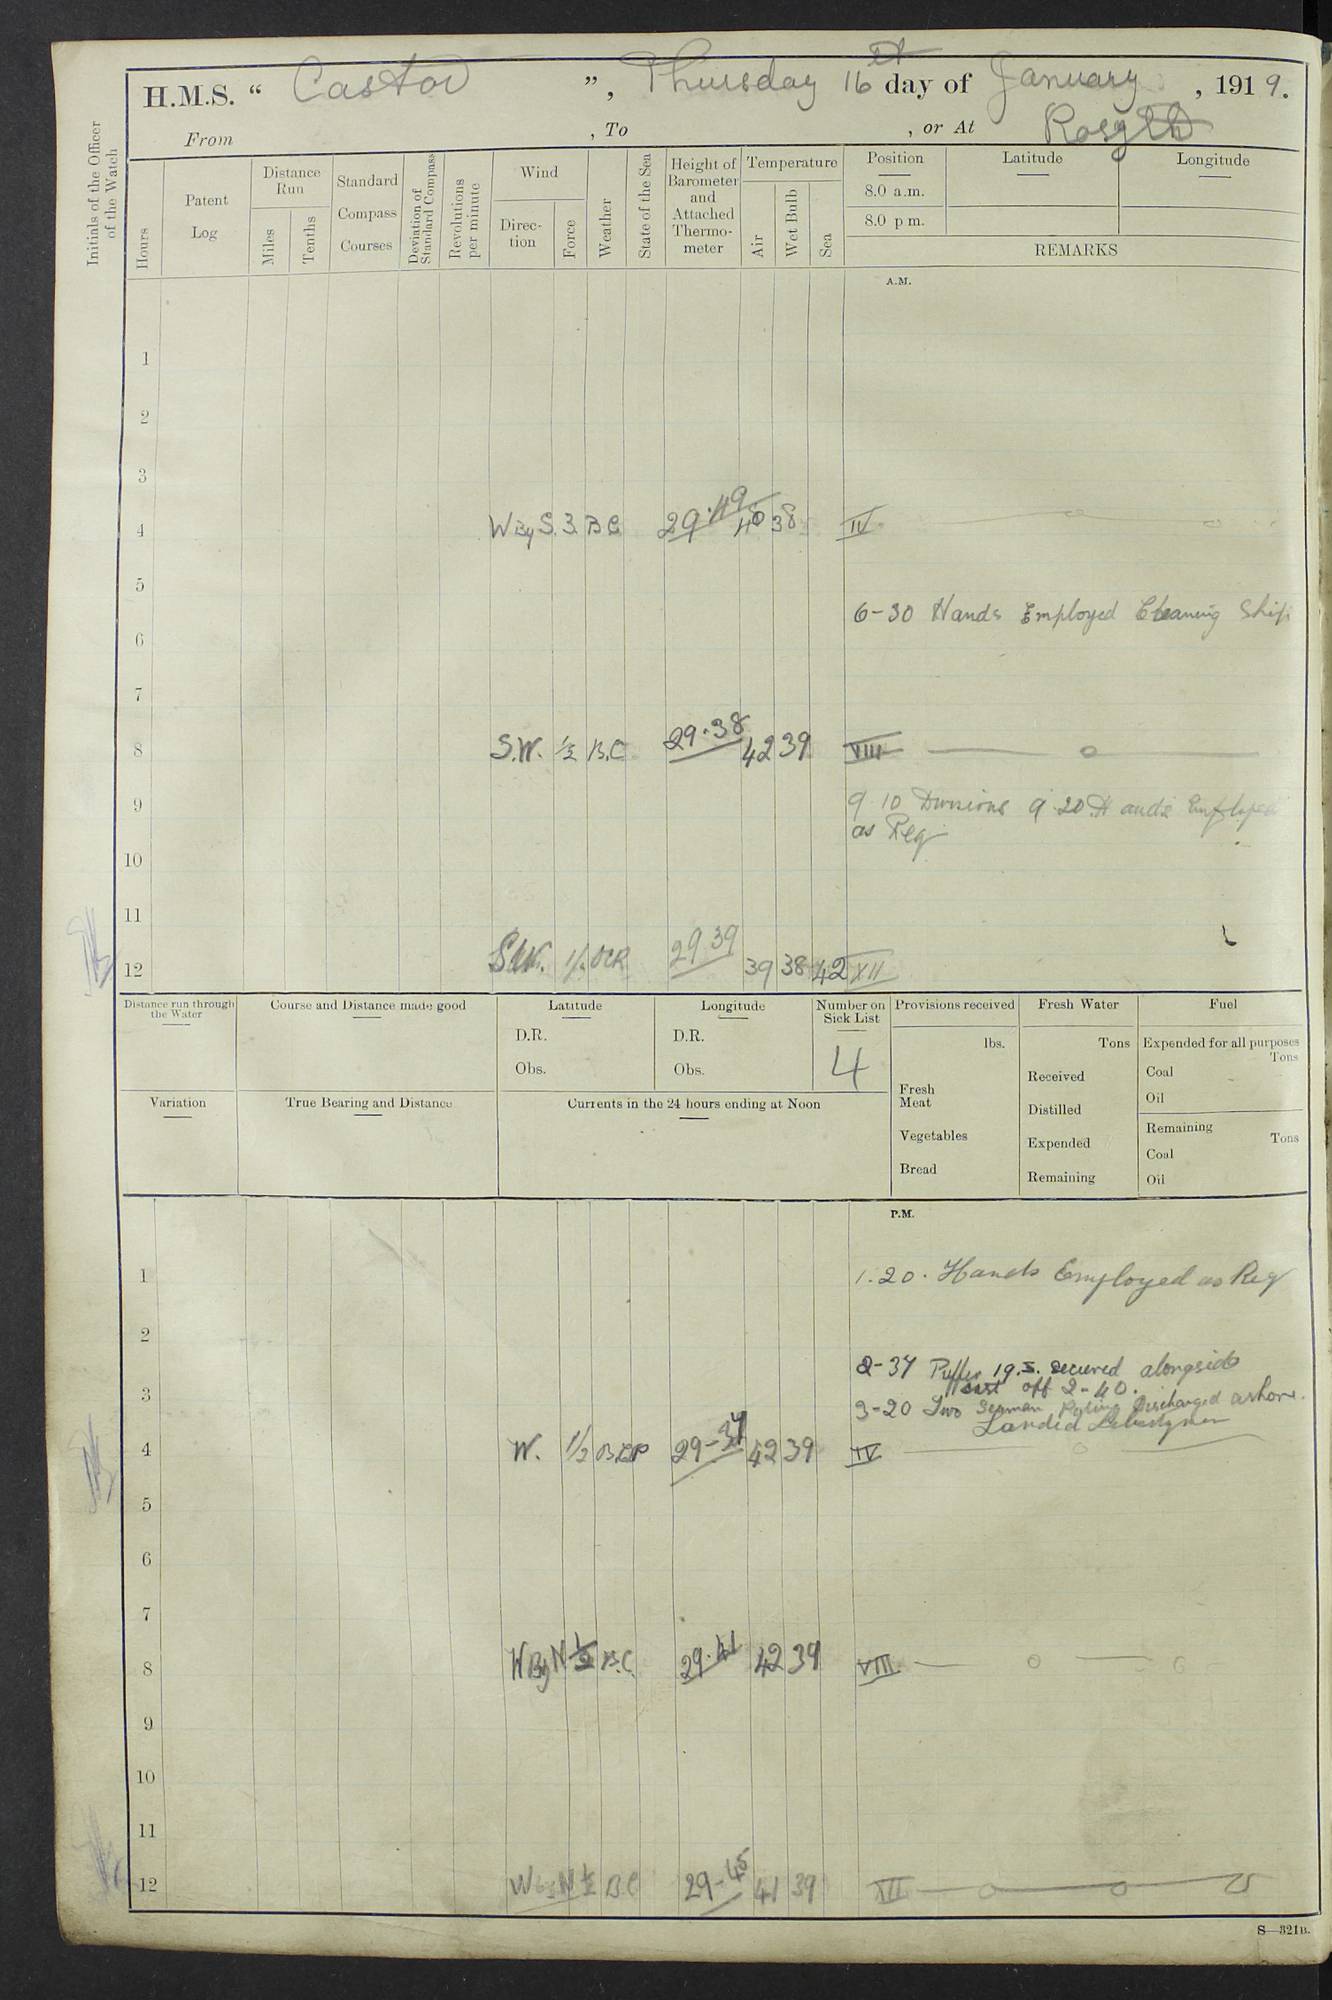 H.M.S. “ Castor ”, Thursday 16th day of January, 1919.
From , To , or At Rosyth
Initials of the Officer of the Watch
Hours
Patent Log
Distance Run
Miles
Tenths
Standard Compass Courses
Deviation of Standard Compass
Revolutions per minute
Wind
Direc-tion
Force
Weather
State of the Sea
Height of Barometer and Attached Thermo-meter
Temperature
Air
Wet Bulb
Sea
Position
8.0 a.m.
8.0 p m.
Latitude
Longitude
REMARKS
A.M.
1
2
3
4 W By S. 3. B C 29.49 40 38 IV
5
6-30 Hands Employed Cleaning Ship
6
7
8 S.W. 1/2 B.C 29.38 42 39 VIII
9 9 10 Divisions 9.20 Hands Employed
as Req
10
11
12 S.W. 1/2 OCR 29 39 39 38 42 XII
Distance run through the Water
Course and Distance made good
Latitude
D.R.
Obs.
Longitude
D.R.
Obs.
Number on Sick List
4
Provisions received
lbs.
Fresh Meat
Vegetables
Bread
Fresh Water
Tons
Received
Distilled
Expended
Remaining
Fuel
Expended for all purposes
Tons
Coal
Oil
Remaining
Tons
Coal
Oil
Variation
True Bearing and Distance
Currents in the 24 hours ending at Noon
P.M.
1 1.20. Hands Employed as Req
2
2-37 Puffer 19.S. secured alongside
Cast off 2-40.
3 3-20 Two German Discharged ashore.
Landed
4 W. 1/2 29-37 42 39 IV
5
6
7
8 W By N 1/2 B.C. 29.41 42 39 VIII
9
10
11
12 W by N 1/2 B C 29-45 41 39 XII
S—321B.